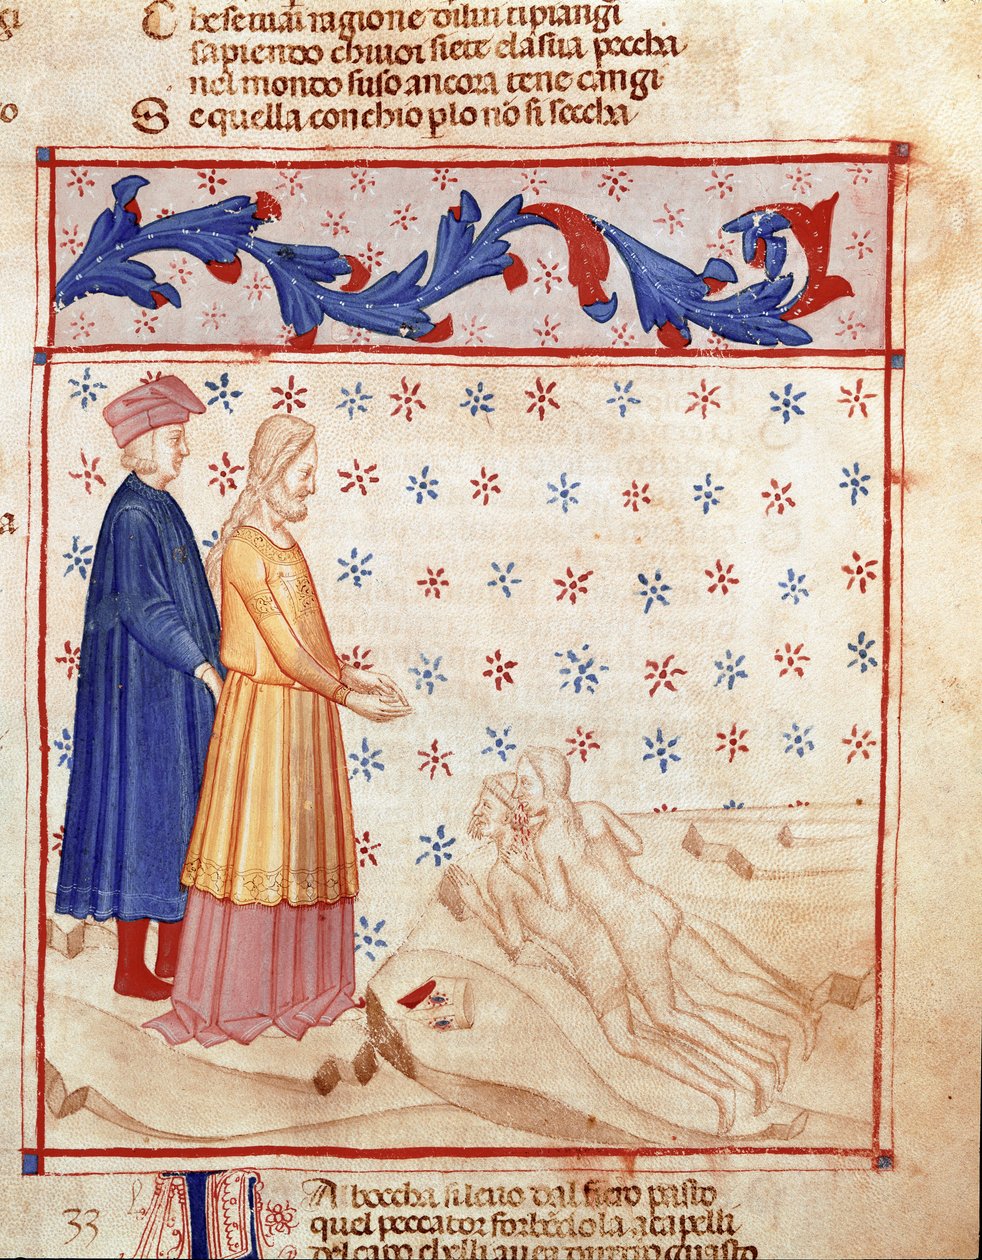 gi
C he se tu ai ragione di lui ti piangi
sapiendo chi uoi siete e la sua peccha
nel mondo suso ancora te ne cangi
o
S e quella con chio plo nõ si seccha
a
33
L A boccha si leuo dal fiero pasto
quel peccator forbẽdola a capelli
del capo chelli auea guasto